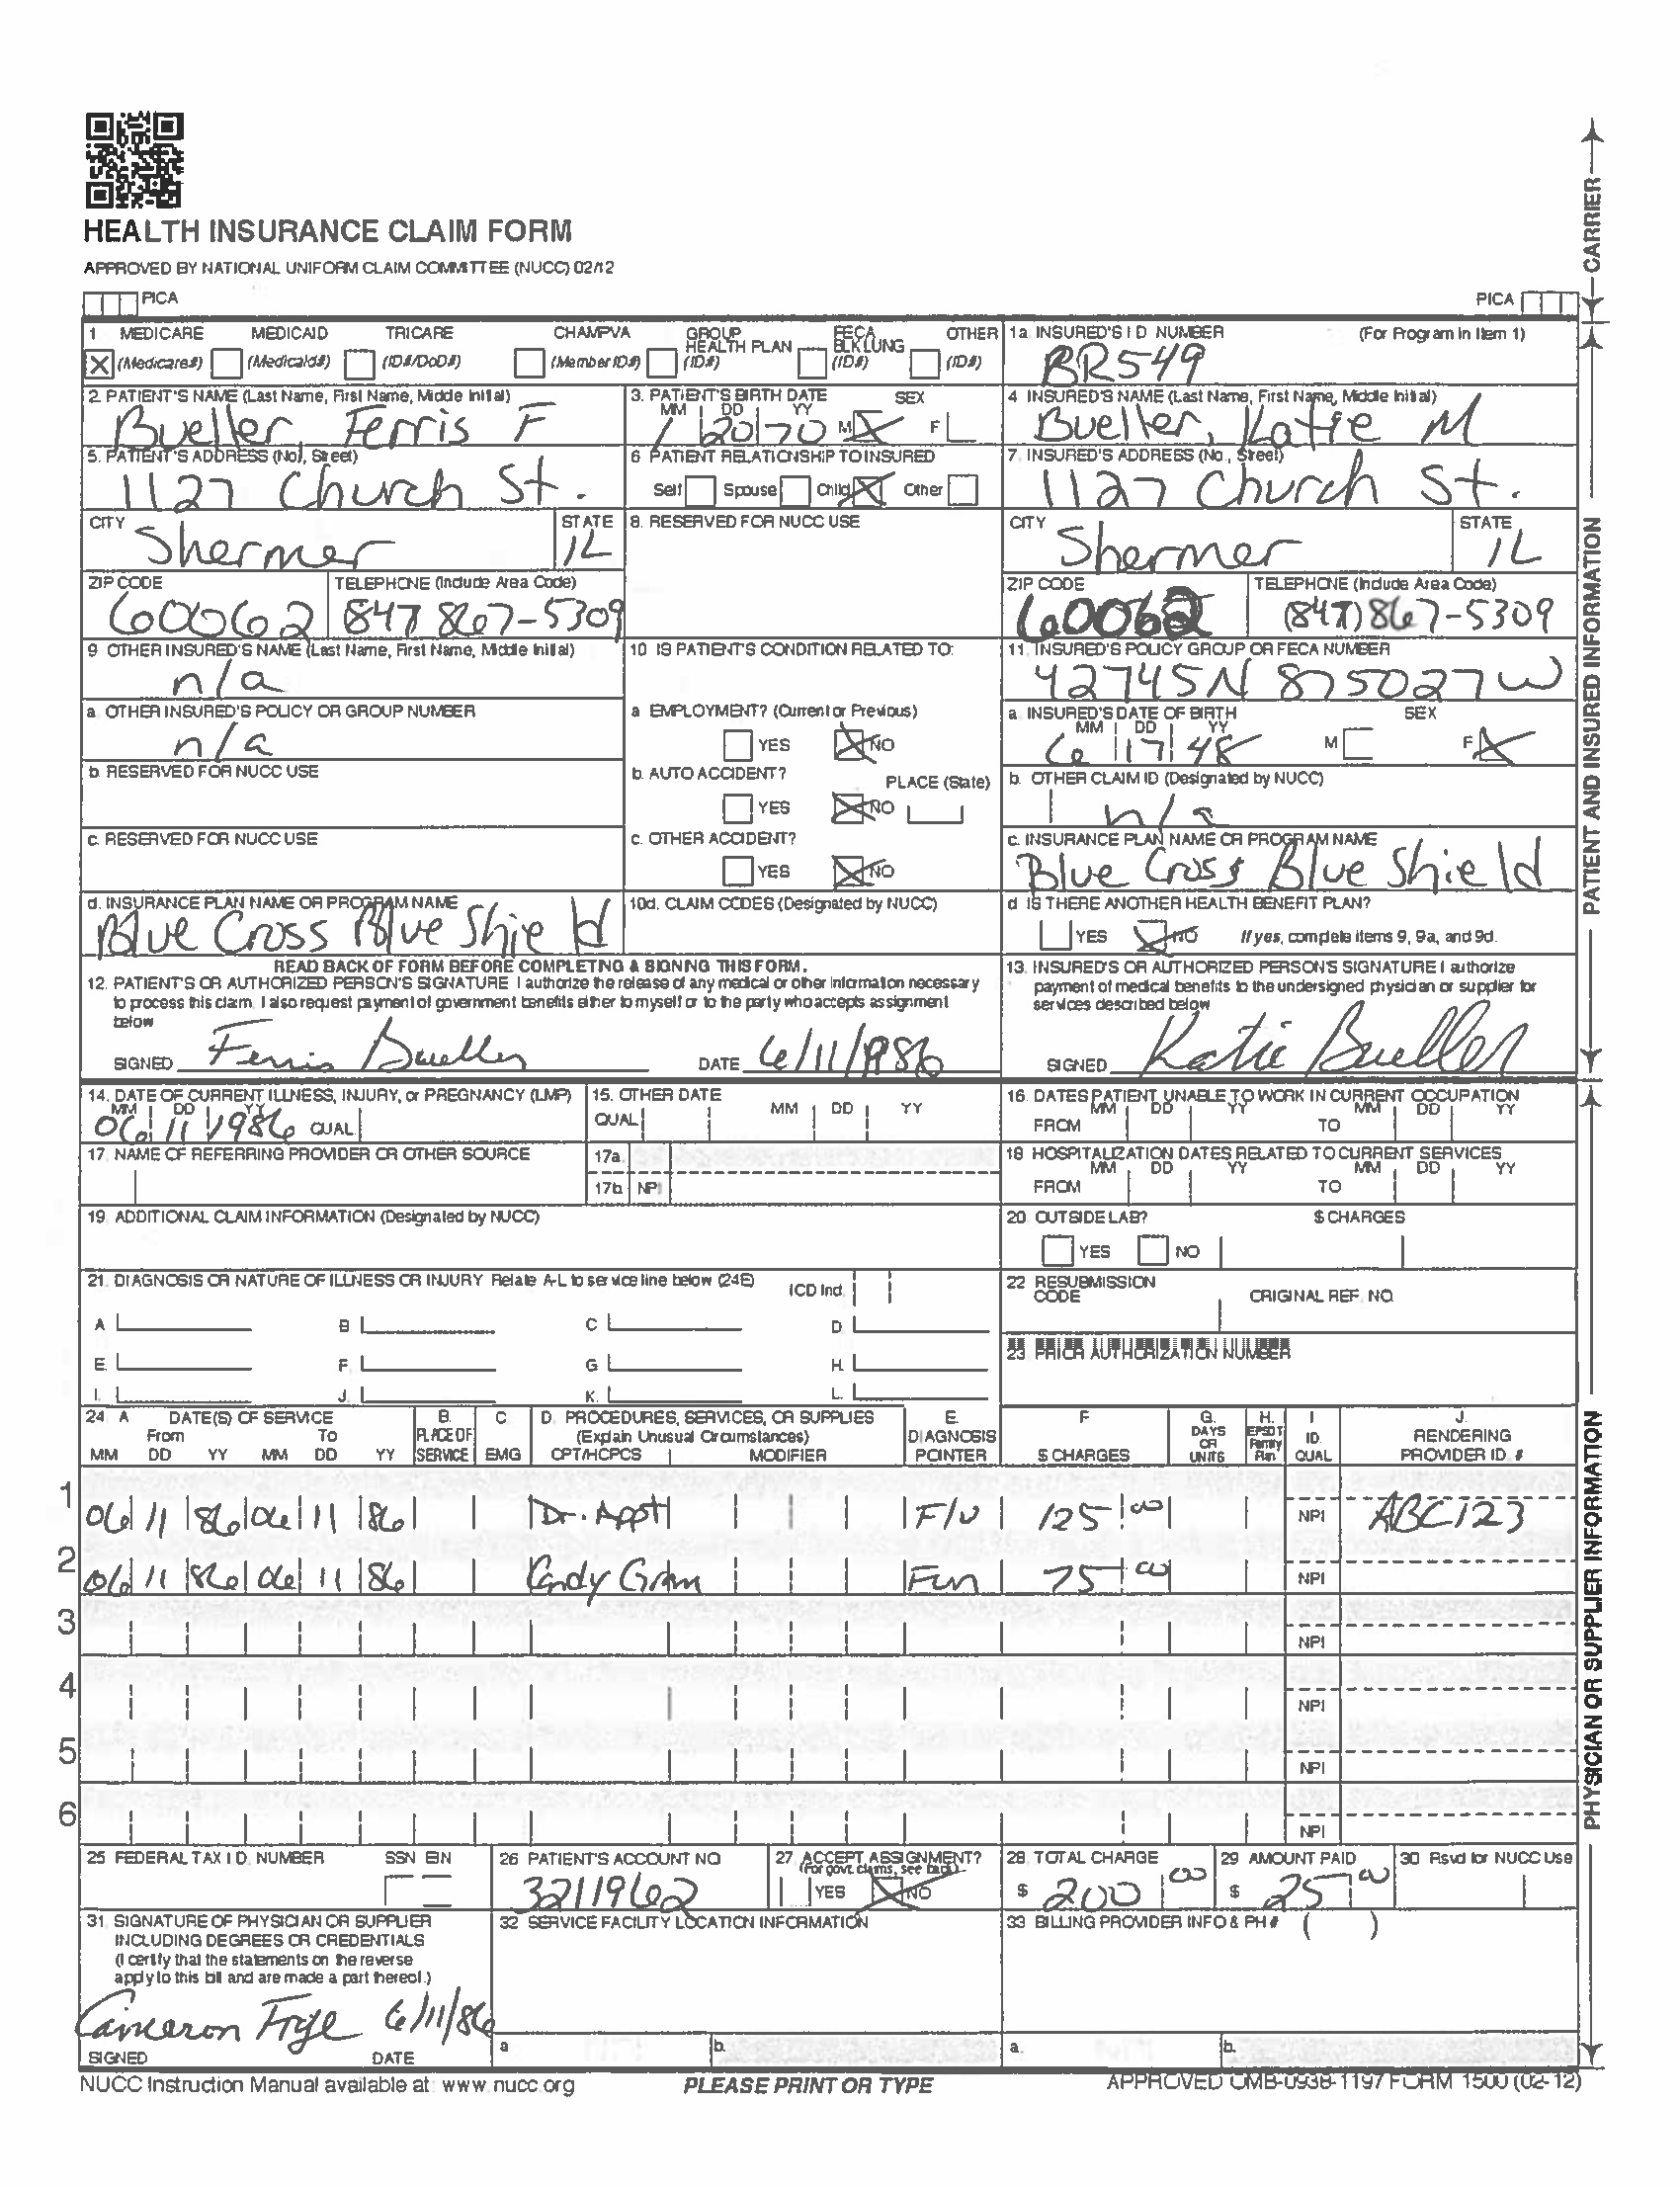 HEALTH INSURANCE CLAIM FORM
APPROVED BY NATIONAL UNIFORM CLAIM COMMITTEE (NUCC) 02/12
PICA
PICA
CARRIER
1 MEDICARE MEDICAID TRICARE CHAMPVA GROUP HEALTH PLAN FECA BLK LUNG OTHER
(Medicare#) (Medicaid#) (ID#/DoD#) (Member ID#) (ID#) (ID#) (ID#)
1a. INSURED'S I D NUMBER (For Program in Item 1)
BR549
2. PATIENT'S NAME (Last Name, First Name, Middle Initial)
Bueller, Ferris F
3. PATIENT'S BIRTH DATE SEX
MM DD YY
1 20 70 M X F
4 INSURED'S NAME (Last Name, First Name, Middle Initial)
Bueller, Katie M
5. PATIENT'S ADDRESS (No., Street)
1127 Church St.
6 PATIENT RELATIONSHIP TO INSURED
Self Spouse Child X Other
7. INSURED'S ADDRESS (No., Street)
1127 Church St.
CITY STATE
Shermer IL
8. RESERVED FOR NUCC USE
CITY STATE
Shermer IL
ZIP CODE TELEPHONE (Include Area Code)
60062 847 867-5309
ZIP CODE TELEPHONE (Include Area Code)
60062 (847) 867-5309
9 OTHER INSURED'S NAME (Last Name, First Name, Middle Initial)
n/a
10 IS PATIENT'S CONDITION RELATED TO:
11. INSURED'S POLICY GROUP OR FECA NUMBER
42745N 875027W
a. OTHER INSURED'S POLICY OR GROUP NUMBER
n/a
a EMPLOYMENT? (Current or Previous)
YES NO
a. INSURED'S DATE OF BIRTH SEX
MM DD YY
6 17 48 M F X
b. RESERVED FOR NUCC USE
b. AUTO ACCIDENT? PLACE (State)
YES NO
b. OTHER CLAIM ID (Designated by NUCC)
n/a
c. RESERVED FOR NUCC USE
c. OTHER ACCIDENT?
YES NO
c. INSURANCE PLAN NAME OR PROGRAM NAME
Blue Cross Blue Shield
d. INSURANCE PLAN NAME OR PROGRAM NAME
Blue Cross Blue Shield
10d. CLAIM CODES (Designated by NUCC)
d IS THERE ANOTHER HEALTH BENEFIT PLAN?
YES NO If yes, complete items 9, 9a, and 9d.
READ BACK OF FORM BEFORE COMPLETING & SIGNING THIS FORM.
12. PATIENT'S OR AUTHORIZED PERSON'S SIGNATURE I authorize the release of any medical or other information necessary
to process this claim. I also request payment of government benefits either to myself or to the party who accepts assignment
below
SIGNED Ferris Bueller DATE 6/11/1986
13. INSURED'S OR AUTHORIZED PERSON'S SIGNATURE I authorize
payment of medical benefits to the undersigned physician or supplier for
services described below
SIGNED Katie Bueller
PATIENT AND INSURED INFORMATION
14. DATE OF CURRENT ILLNESS, INJURY, or PREGNANCY (LMP)
MM DD YY
06 11 1986 QUAL
15. OTHER DATE
QUAL MM DD YY
16. DATES PATIENT UNABLE TO WORK IN CURRENT OCCUPATION
MM DD YY MM DD YY
FROM TO
17. NAME OF REFERRING PROVIDER OR OTHER SOURCE
17a.
17b NPI
18 HOSPITALIZATION DATES RELATED TO CURRENT SERVICES
MM DD YY MM DD YY
FROM TO
19. ADDITIONAL CLAIM INFORMATION (Designated by NUCC)
20. OUTSIDE LAB? $ CHARGES
YES NO
21. DIAGNOSIS OR NATURE OF ILLNESS OR INJURY Relate A-L to service line below (24E) ICD Ind.
A B C D.
E. F. G H.
I. J. K. L.
22 RESUBMISSION
CODE ORIGINAL REF. NO.
23. PRIOR AUTHORIZATION NUMBER
24. A DATE(S) OF SERVICE B. C. D. PROCEDURES, SERVICES, OR SUPPLIES E. F G. H. I J.
From To PLACE OF (Explain Unusual Circumstances) DIAGNOSIS DAYS OR EPSDT Family ID. RENDERING
MM DD YY MM DD YY SERVICE EMG CPT/HCPCS MODIFIER POINTER $ CHARGES UNITS Plan QUAL PROVIDER ID. #
1 06 11 86 06 11 86 Dr. Appt F/U 125 00 NPI ABC123
2 06 11 86 06 11 86 Candy Gram Fun 75 00 NPI
3 NPI
4 NPI
5 NPI
6 NPI
25 FEDERAL TAX I.D. NUMBER SSN EIN
26 PATIENT'S ACCOUNT NO
3211962
27 ACCEPT ASSIGNMENT?
(For govt. claims, see back)
YES NO
28. TOTAL CHARGE
$ 200 00
29 AMOUNT PAID
$ 25 00
30 Rsvd for NUCC Use
31. SIGNATURE OF PHYSICIAN OR SUPPLIER
INCLUDING DEGREES OR CREDENTIALS
(I certify that the statements on the reverse
apply to this bill and are made a part thereof.)
Cameron Frye 6/11/86
SIGNED DATE
32 SERVICE FACILITY LOCATION INFORMATION
a b.
33 BILLING PROVIDER INFO & PH # ( )
a. b.
PHYSICIAN OR SUPPLIER INFORMATION
NUCC Instruction Manual available at: www.nucc.org
PLEASE PRINT OR TYPE
APPROVED OMB-0938-1197 FORM 1500 (02-12)